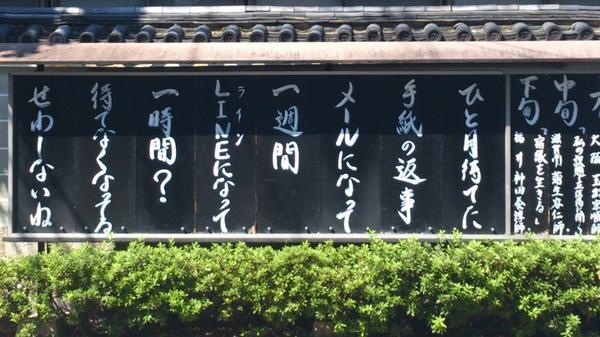 ひと月待てた
手紙の返事
メールになって
一週間
LINEになって
ライン
一時間？
待てなくなってる
せわしないね
中旬
下旬